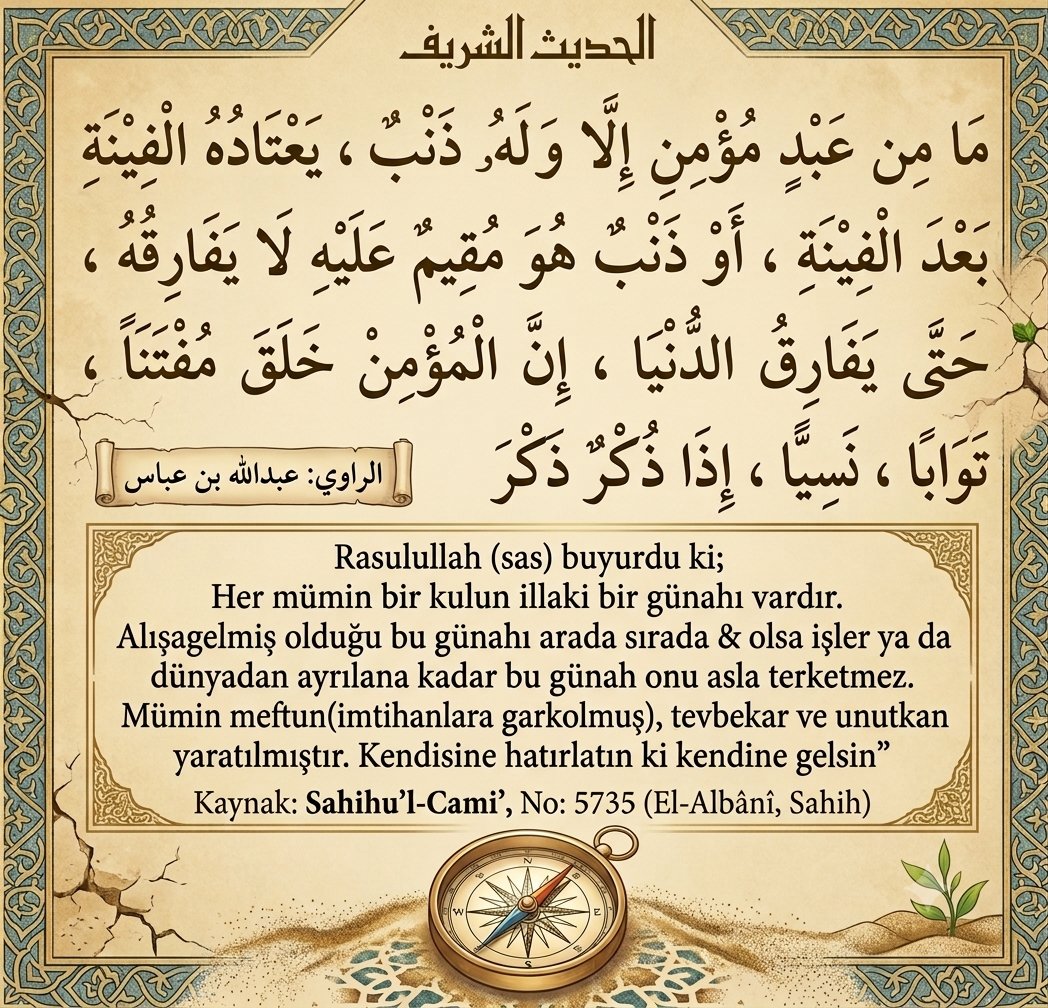 الحديث الشريف
مَا مِن عَبْدٍ مُؤْمِنِ إِلَّا وَلَهُ ذَنْبٌ ، يَعْتَادُهُ الْفِيْنَةِ
بَعْدَ الْفِيْنَةِ ، أَوْ ذَنْبٌ هُوَ مُقِيمٌ عَلَيْهِ لَا يَفَارِقُهُ ،
حَتَّى يَفَارِقُ الدُّنْيَا ، إِنَّ الْمُؤْمِنْ خَلَقَ مُفْتَنَاً ،
تَوَابًا ، نَسِيًّا ، إِذَا ذُكْرٌ ذَكْرَ
الراوي: عبدالله بن عباس
Rasulullah (sas) buyurdu ki;
Her mümin bir kulun illaki bir günahı vardır.
Alışagelmiş olduğu bu günahı arada sırada & olsa işler ya da
dünyadan ayrılana kadar bu günah onu asla terketmez.
Mümin meftun(imtihanlara garkolmuş), tevbekar ve unutkan
yaratılmıştır. Kendisine hatırlatın ki kendine gelsin”
Kaynak: Sahihu’l-Cami’, No: 5735 (El-Albânî, Sahih)
N
W
E
S